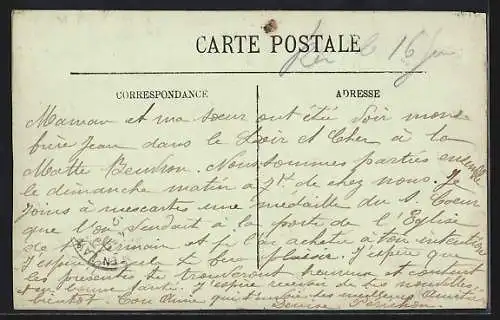 CARTE POSTALE
le 16 Juin
CORRESPONDANCE
ADRESSE
Maman et ma sœur ont été voir mon
frère Jean dans le Loir et Cher à la
Motte Beuvron. Nous sommes parties ensemble
le dimanche matin à 7h de chez nous. Je
joins à mes cartes une médaille du S. Coeur
que l'on vendait à la porte de l'Eglise
de St Germain et je l'ai achetée à ton intention
J'espère te fera plaisir. J'espère que
les présentes te trouveront heureux et content
et en bonne santé. J'espère recevoir de tes nouvelles
bientôt. Ton Amie qui t'envoie ses meilleures Amitiés
Denise